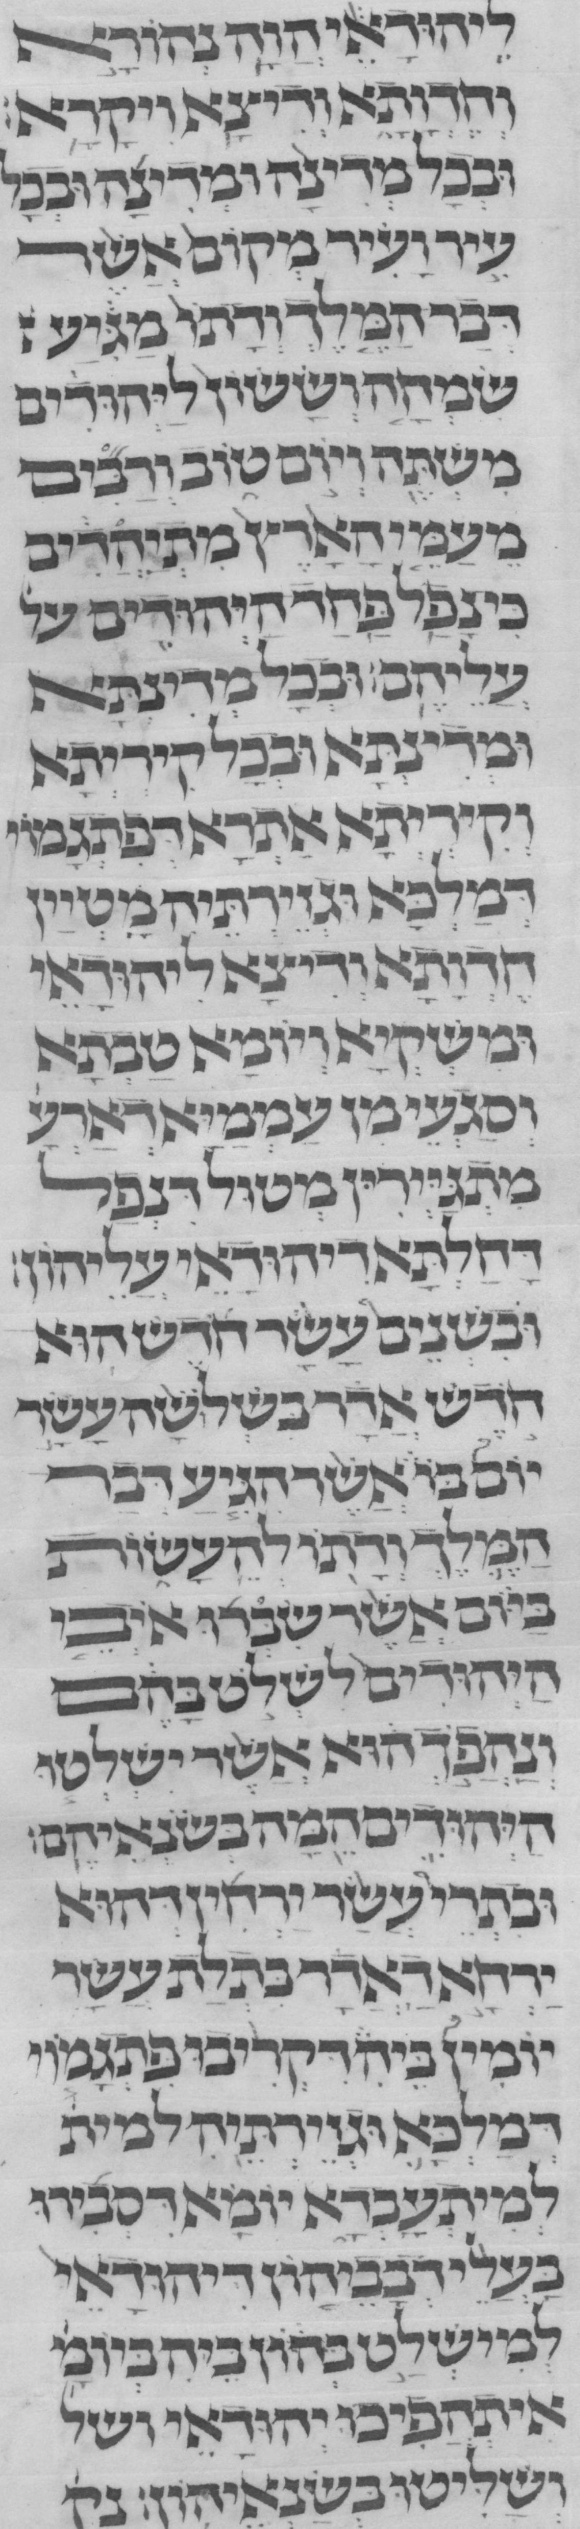 לִיהוּדָאֵי הֲוָה נְהוֹרָא
וְחֶדְוָתָא וְדִיצָא וִיקָרָא׃
וּבְכָל מְדִינָה וּמְדִינָה וּבְכָל
עִיר וָעִיר מְקוֹם אֲשֶׁר
דְּבַר הַמֶּלֶךְ וְדָתוֹ מַגִּיעַ
שִׂמְחָה וְשָׂשׂוֹן לַיְּהוּדִים
מִשְׁתֶּה וְיוֹם טוֹב וְרַבִּים
מֵעַמֵּי הָאָרֶץ מִתְיַהֲדִים
כִּי נָפַל פַּחַד הַיְּהוּדִים על
עֲלֵיהֶם׃ וּבְכָל מְדִינְתָּא
וּמְדִינְתָּא וּבְכָל קִירְיְתָא
וְקִירְיְתָא אַתְרָא דְּפִתְגָמוֹי
דְּמַלְכָּא וּגְזֵירְתֵּיהּ מָטְיַין
חֶדְוָתָא וְדִיצָא לִיהוּדָאֵי
וּמִשְׁקְיָא וְיוֹמָא טַבְתָא
וְסַגְעֵי מִן עַמְמַיָּא דְאַרְעָ
מִתְגַּיְירִין מְטוּל דִּנְפַל
דַּחַלְתָּא דִיהוּדָאֵי עֲלֵיהוֹן׃
וּבִשְׁנֵים עָשָׂר חֹדֶשׁ הוּא
חֹדֶשׁ אֲדָר בִּשְׁלֹשָׁה עָשָׂר
יוֹם בּוֹ אֲשֶׁר הִגִּיעַ דְּבַר
הַמֶּלֶךְ וְדָתוֹ לְהֵעָשׂוֹת
בַּיּוֹם אֲשֶׁר שִׂבְּרוּ אֹיְבֵי
הַיְּהוּדִים לִשְׁלֹט בָּהֶם
וְנַהֲפֹךְ הוּא אֲשֶׁר יִשְׁלְטוּ
הַיְּהוּדִים הֵמָּה בְּשֹׂנְאֵיהֶם׃
וּבִתְרֵי עֲשַׂר יַרְחִין דְּהוּא
יַרְחָא דַאֲדָר בִּתְלַת עֲשַׂר
יוֹמִין בֵּיהּ דִּקְרִיבוּ פִּתְגָמוֹי
דְּמַלְכָּא וּגְזֵירְתֵּיהּ למית
לְמִיתְעָבְדָא יוֹמָא דִּסְבִירוּ
בַּעֲלֵי דְבָבֵיהוֹן דִּיהוּדָאֵי
לְמִישְׁלַט בְּהוֹן בֵּיהּ בְּיוֹמָ
אִיתְהֲפִיכוּ יְהוּדָאֵי ושל
וְשַׁלִּיטוּ בְּשָׂנְאֵיהוֹן׃ נק